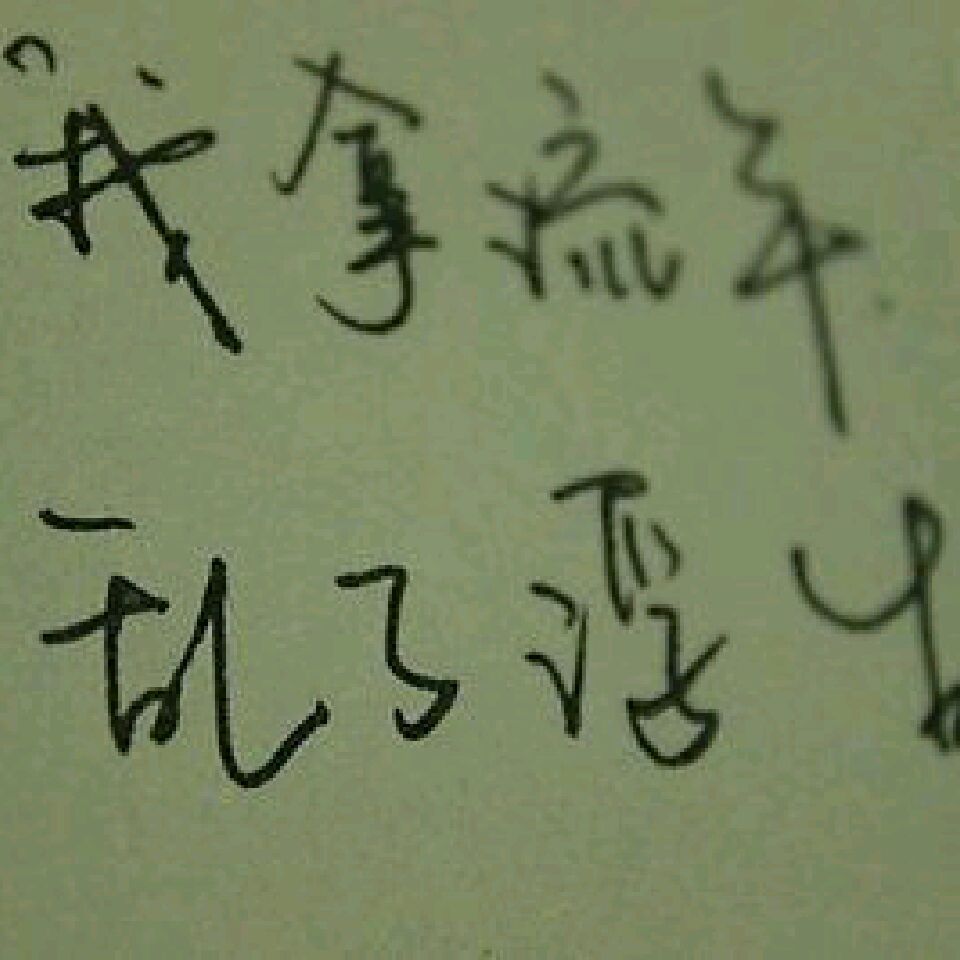 我拿流年
乱了浮生